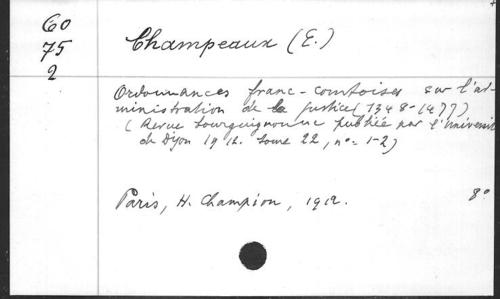 60
75
2
Champeaux (E.)
Ordonnances franc-comtoises sur l'ad-
ministration de la justice (1348-1477)
(Revue bourguignonne publiée par l'Université
de Dijon 1912. tome 22, nº= 1-2)
Paris, H. Champion, 1912.
8º